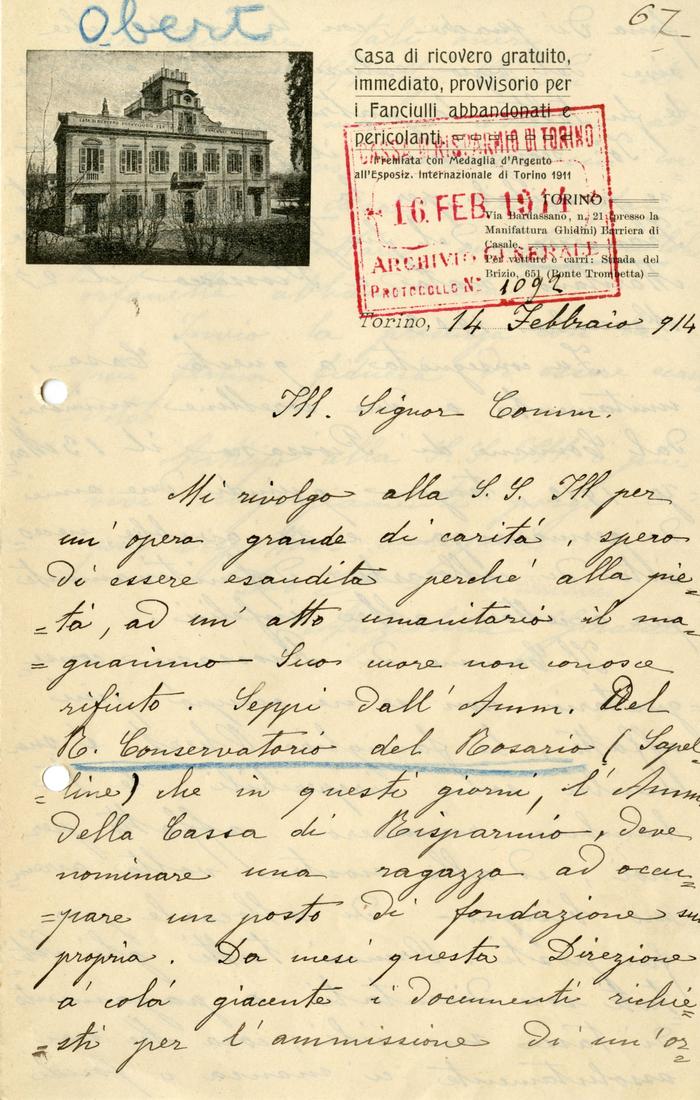 Obert
67
Casa di ricovero gratuito,
immediato, provvisorio per
i Fanciulli abbandonati e
pericolanti
Premiata con Medaglia d'Argento
all'Esposiz. Internazionale di Torino 1911
CASSA DI RISPARMIO DI TORINO
16. FEB. 1914
ARCHIVIO GENERALE
PROTOCOLLO N° 1092
TORINO
Via Bardassano, n. 21 (presso la
Manifattura Ghidini) Barriera di
Casale
Per vetture e carri: Strada del
Brizio, 651 (Ponte Trombetta)
Torino, 14 Febbraio 914
Ill. Signor Comm.
Mi rivolgo alla S. S. Ill per
un' opera grande di caritá, spero
di essere esaudita perché alla pie=
=tá, ad un' atto umanitario il ma=
=gnanimo Suo cuore non conosce
rifiuto. Seppi dall' Amm. Del
R. Conservatorio del Rosario (Sapel=
=line) che in questi giorni, l' Amm
della Cassa di Risparmio, deve
nominare una ragazza ad occu=
=pare un posto di fondazione sua
propria. Da mesi questa Direzione
á colá giacente i documenti richie=
=sti per l' ammissione di un' or=